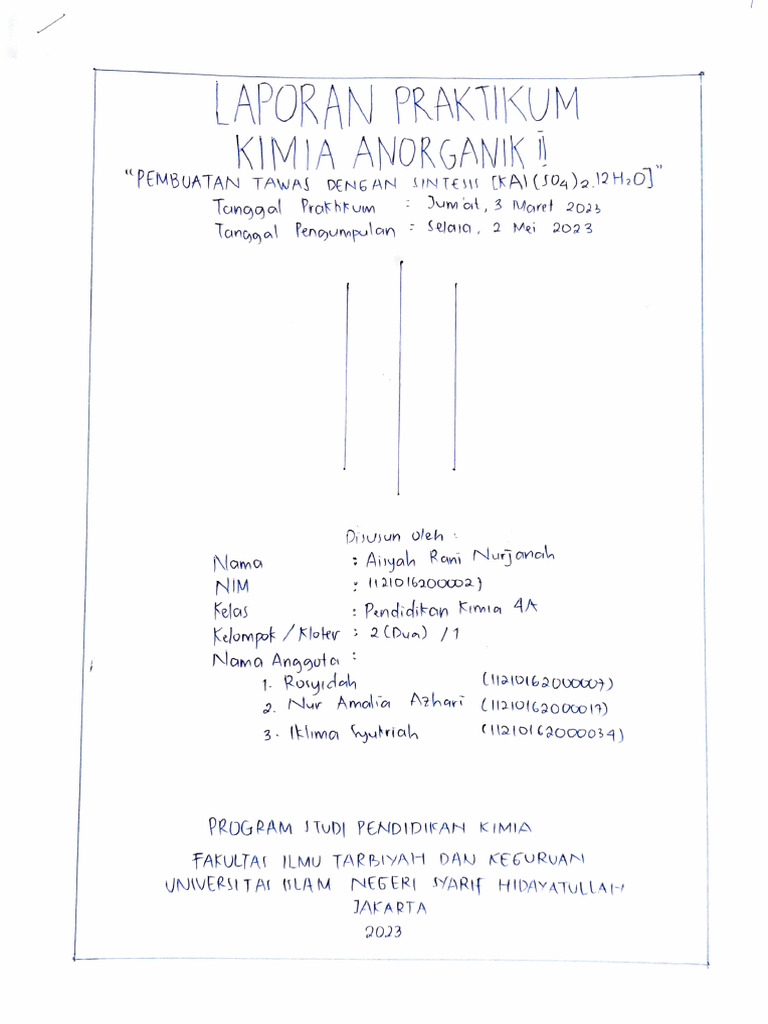 LAPORAN PRAKTIKUM
KIMIA ANORGANIK II
"PEMBUATAN TAWAS DENGAN SINTESIS [KAl(SO4)2.12H2O]"
Tanggal Praktikum : Jum'at, 3 Maret 2023
Tanggal Pengumpulan : Selasa, 2 Mei 2023
Disusun oleh :
Nama : Aisyah Rani Nurjanah
NIM :
Kelas : Pendidikan Kimia 4A
Kelompok / Kloter : 2 (Dua) / 1
Nama Anggota :
1. Rosyidah (11210162000007)
2. Nur Amalia Azhari (11210162000017)
3. Iklima Syukriah (11210162000034)
PROGRAM STUDI PENDIDIKAN KIMIA
FAKULTAS ILMU TARBIYAH DAN KEGURUAN
UNIVERSITAS ISLAM NEGERI SYARIF HIDAYATULLAH
JAKARTA
2023